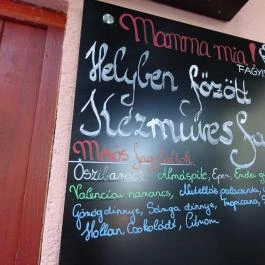 Mamma mia!
FAGYI
Helyben főzött
Kézműves fa
Mizós fagylaltok
Őszibarack, Almáspite, Eper, Erdei g
Valenciai narancs, Nutellás palacsinta,
Görögdinnye, Sárga dinnye, Tropicana, S
Holland Csokoládé, Citrom